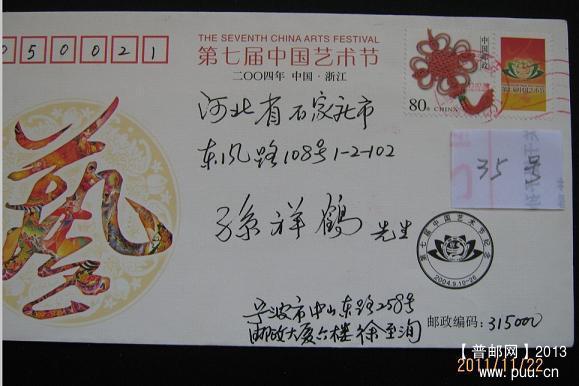 050021
THE SEVENTH CHINA ARTS FESTIVAL
第七届中国艺术节
二〇〇四年 中国·浙江
中国邮政
80分
CHINA
河北省石家庄市
东风路108号1-2-102
35号
孙祥鹤 先生
第七届中国艺术节纪念
2004.9.10-26
藝
宁波市中山东路258号
邮政大厦六楼 徐至洵
邮政编码:315000
【普邮网】2013
2011/11/22
www.puu.cn